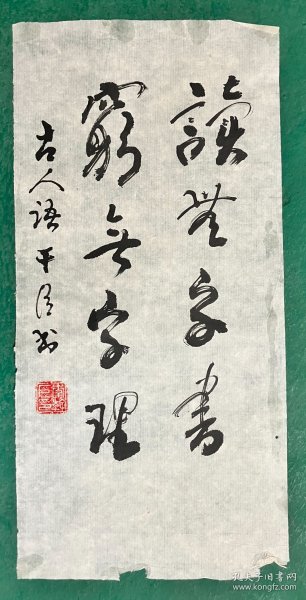 讀無字書
窮無字理
古人語 平信书
孔夫子旧书网
www.kongfz.com